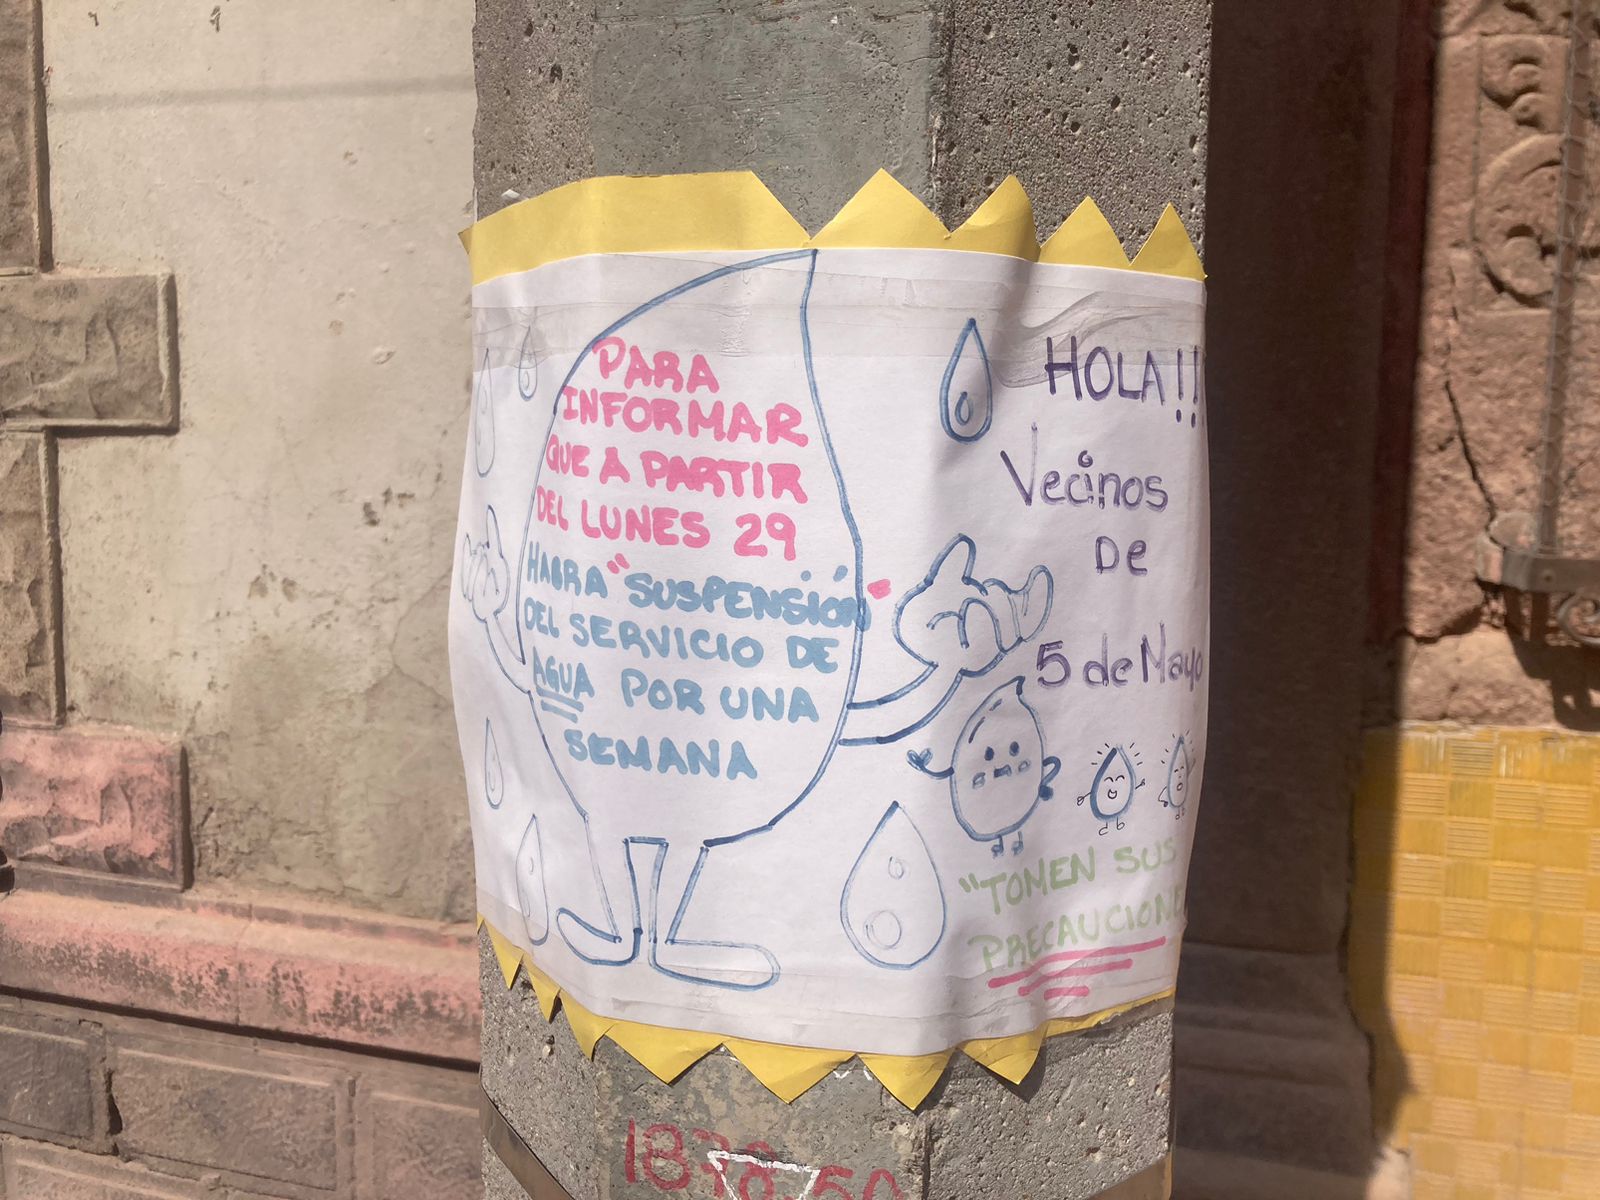 PARA
INFORMAR
QUE A PARTIR
DEL LUNES 29
HABRA "SUSPENSIÓN"
DEL SERVICIO DE
AGUA POR UNA
SEMANA
HOLA!!
Vecinos
De
5 de Mayo
"TOMEN SUS
PRECAUCIONE